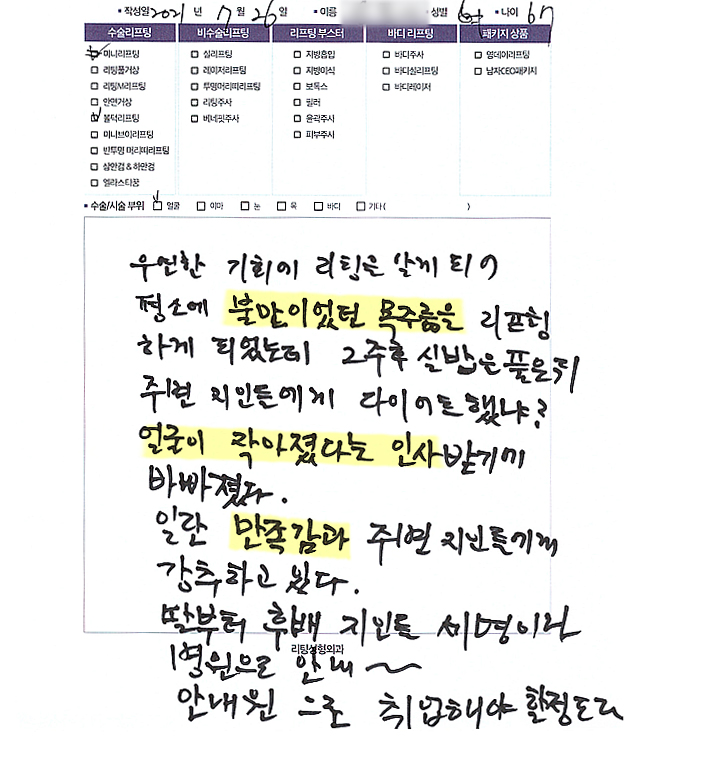 • 작성일 2021 년 7 월 26 일 • 이름 성별 여 • 나이 67
수술리프팅 비수술리프팅 리프팅 부스터 바디 리프팅 패키지 상품
미니리프팅 실리프팅 지방흡입 바디주사 영데이리프팅
리팅풀거상 레이저리프팅 지방이식 바디실리프팅 남자CEO패키지
리팅M리프팅 투명머리띠리프팅 보톡스 바디레이저
안면거상 리팅주사 필러
볼턱리프팅 베네핏주사 윤곽주사
미니브이리프팅 피부주사
반투명 머리띠리프팅
상안검 & 하안검
엘라스티꿈
• 수술/시술 부위 얼굴 이마 눈 목 바디 기타( )
우연한 기회에 리팅을 알게 되어
평소에 불만이었던 목주름을 리프팅
하게 되었는데 2주후 실밥을 풀은뒤
주변 지인들에게 다이어트 했냐?
얼굴이 작아졌다는 인사받기에
바빠졌다.
일단 만족감과 주변 지인들에게
강추하고 있다.
딸부터 후배 지인들 세명이나
리팅성형외과
병원으로 안내~
안내원 으로 취업해야 할정도다